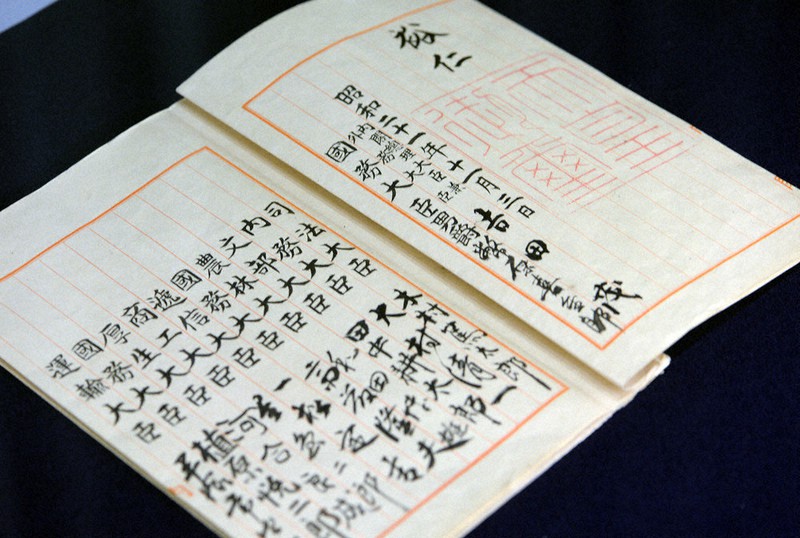 裕仁
天皇御璽
昭和二十一年十一月三日
內閣總理大臣兼
外務大臣 吉田茂
國務大臣男爵幣原喜重郎
司法大臣 木村篤太郎
內務大臣 大村清一
文部大臣 田中耕太郎
農林大臣 和田博雄
國務大臣 斎藤隆夫
遞信大臣 一松定吉
商工大臣 星島二郎
厚生大臣 河合良成
國務大臣 植原悦二郎
運輸大臣 平塚常次